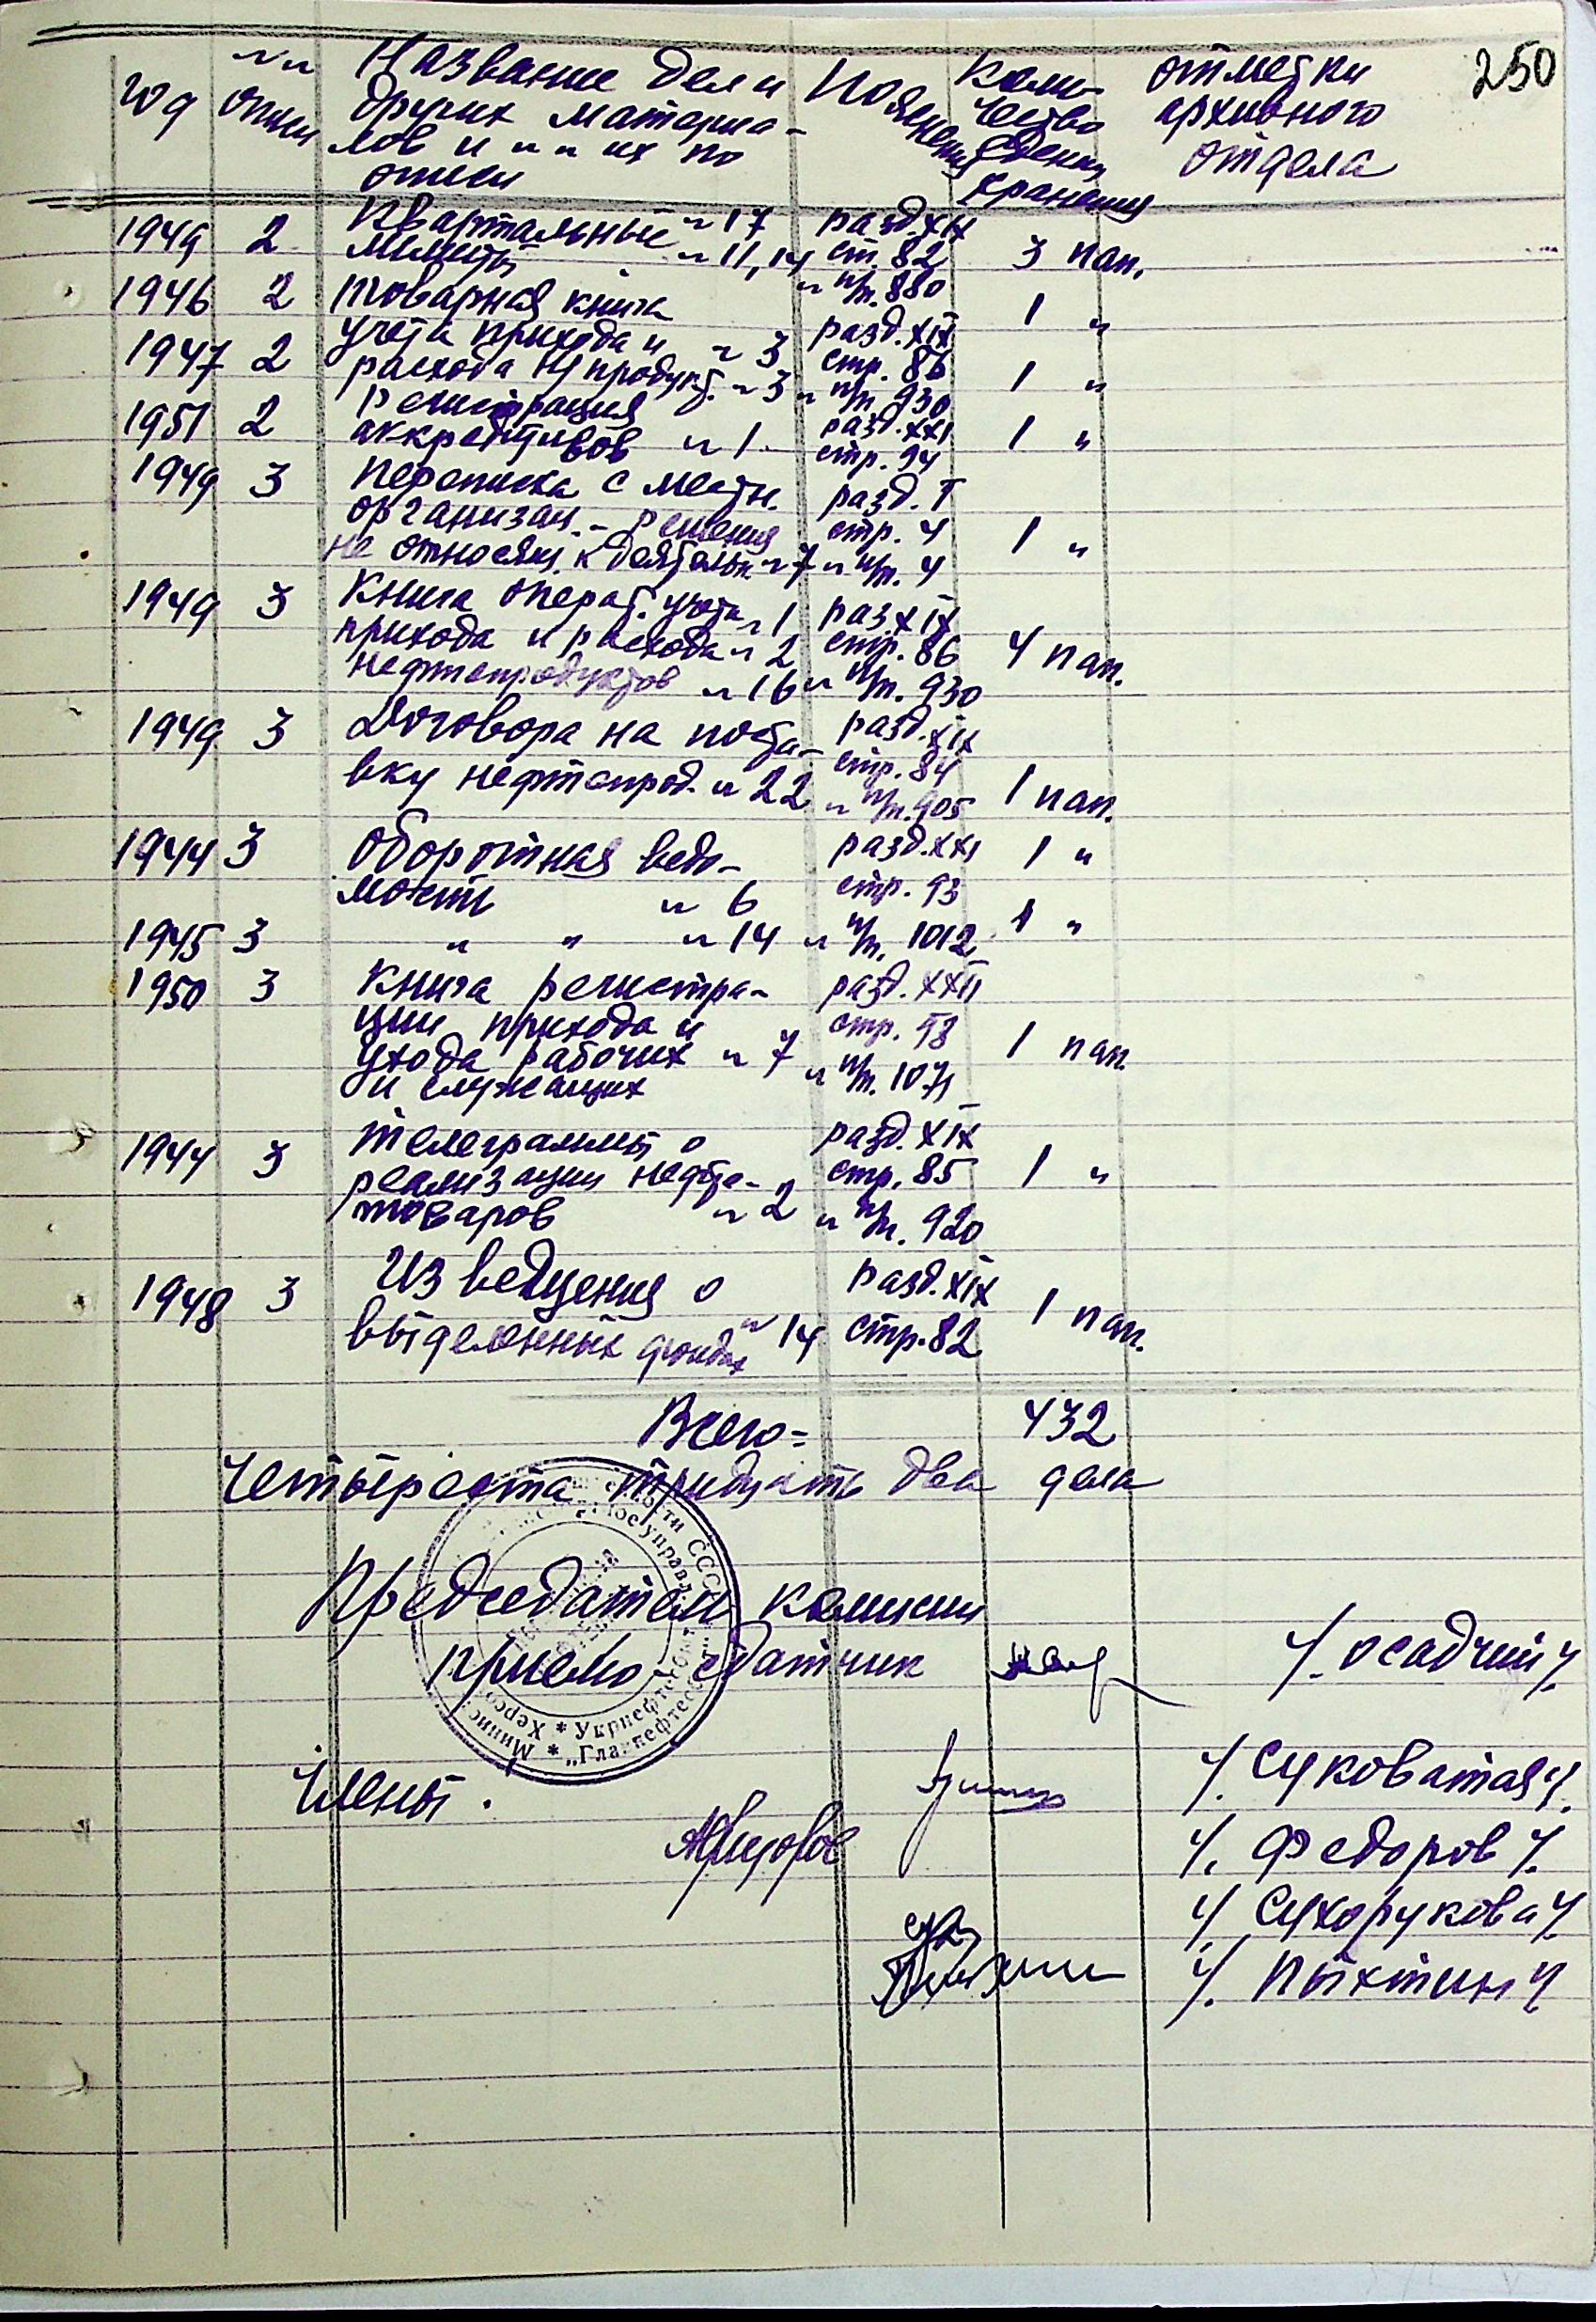 250
Год № № описи Название дел и других материалов и № № их по описи Пояснения Количество единиц хранения отметки архивного отдела
1949 2 Квартальные № 17 разд. XIX
лимиты № 11, 14 ст. 82 3 пап.
№ п/п. 880
1946 2 товарная книга 1 "
учета прихода и № 3 разд. XIX
1947 2 расхода н/продукт. № 3 стр. 86 1 "
№ п/п 930
1951 2 Регистрация разд. XXI
аккредитивов № 1 стр. 94 1 "
1949 3 Переписка с местн. разд. I
организац. - решения стр. 4 1 "
не относящ. к деятельн № 7 № п/п. 4
1949 3 Книга операт. учета № 1 раз XIX
прихода и расхода № 2 стр. 86 4 пап.
нефтепродуктов № 16 № п/п. 930
1949 3 Договора на поста- разд. XIX
стр. 84
вку нефтепрод. № 22 № п/п. 905 1 пап.
1944 3 Оборотная ведо- разд. XXI 1 "
мость № 6 стр. 93
1945 3 " " № 14 № п/п. 1012 1 "
1950 3 Книга регистра- разд. XXII
ции прихода и стр. 98
ухода рабочих № 7 1 пап.
и служащих № п/п. 1071
1944 3 телеграммы о разд. XIX
реализации нефте- стр. 85 1 "
товаров № 2 № п/п. 920
1948 3 Изведщения о разд. XIX
выделенных фондах № 14 стр. 82 1 пап.
Всего = 432
Четыреста тридцать два дела
Председатель комисии
приемо-сдатчик /. Осадчий /.
Члены. /. Суковатая /.
/. Федоров /.
/. Сухорукова /
/. Пыхтин /